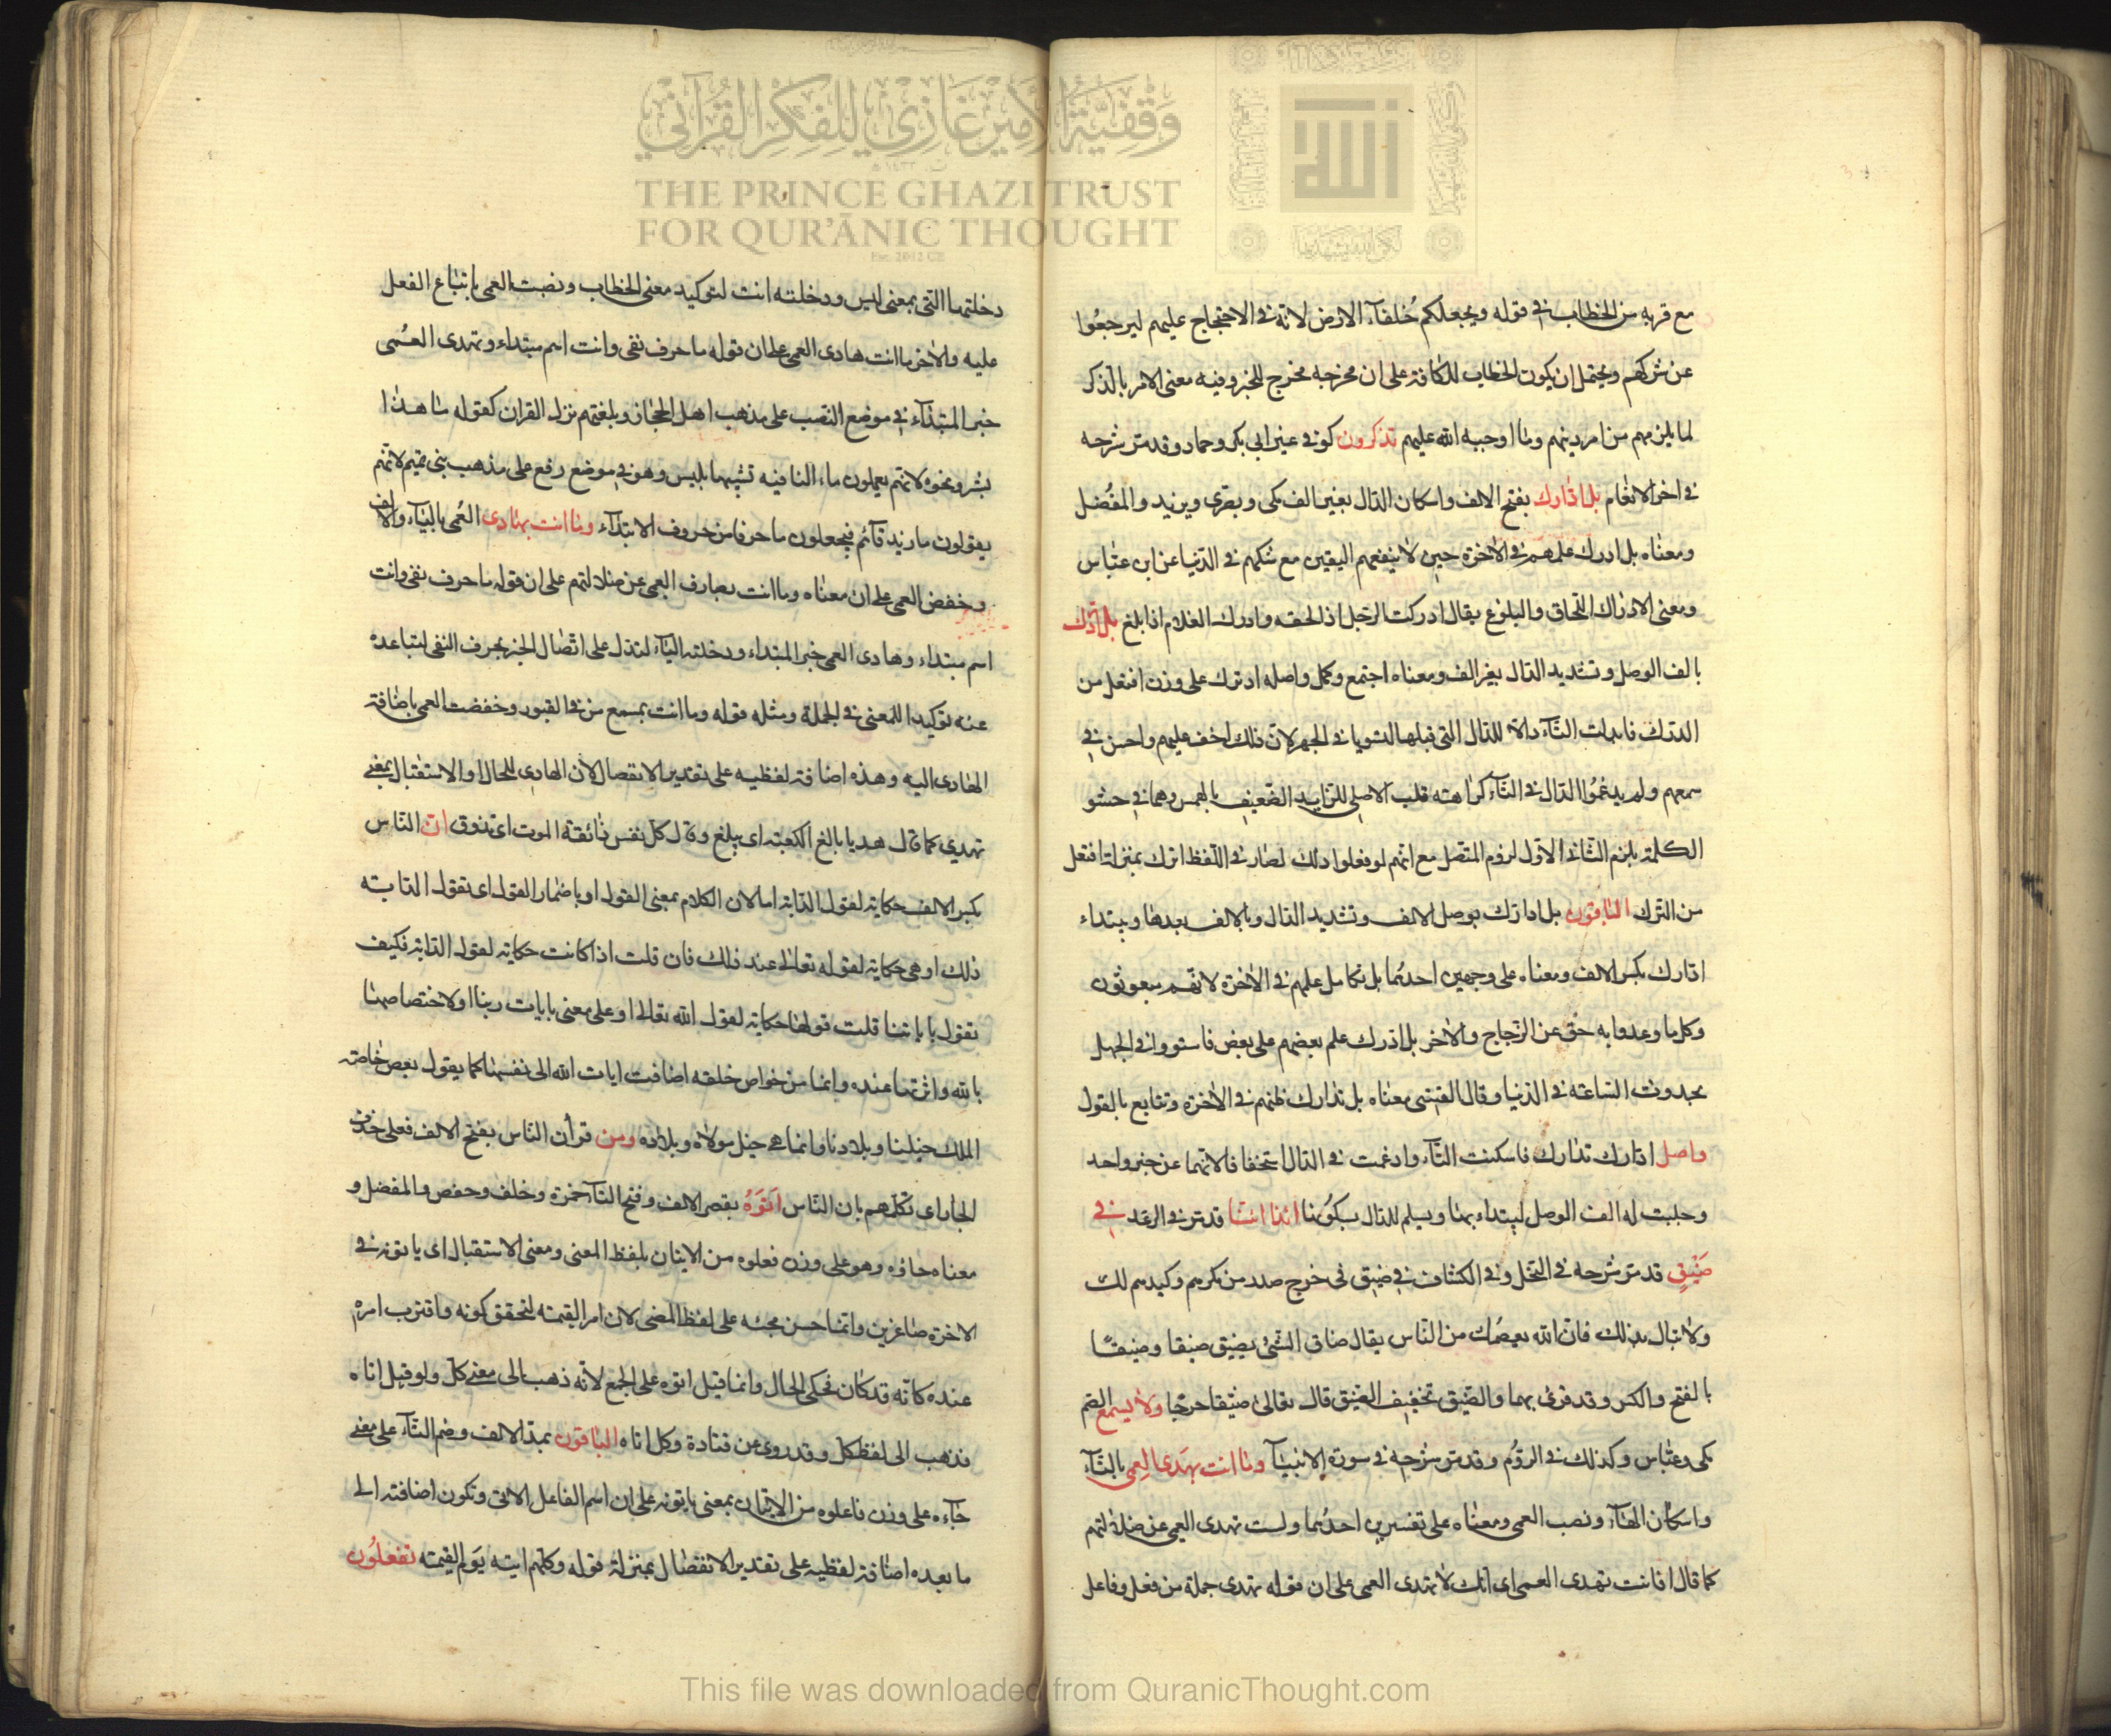 وقفية الأمير غازي للفكر القرآني
THE PRINCE GHAZI TRUST
FOR QUR'ĀNIC THOUGHT
مع قربه من الخطاب في قوله ويجعلكم خُلفآء الارض لانه في الاحتجاج عليهم ليرجعُوا
عن شركهم ويحتمل ان يكون الخطاب للكافة على ان مخرجه مخرج للخبر وفيه معنى الامر بالذكر
لما يلزمهم من امر دينهم وما اوجبه الله عليهم تذكرون كوفي غير ابي بكر وحماد وقد مر شرحه
في اخر الانعام بل ادارك بفتح الالف واسكان الدال بغير الف مكى وبصرى ويزيد والمفُضل
ومعناه بل ادرك علمهم في الاخرة حين لا ينفعهم اليقين مع شكهم في الدنيا عن ابن عبّاس
ومعنى الادراك اللحاق والبلوغ يقال ادركت الرجل اذ لحقه وادرك الغلام اذا بلغ بل ادّرك
بالف الوصل وتشديد الدال بغير الف ومعناه اجتمع وكمل واصله ادترك على وزن افتعل من
الدرك فابدلت التآء دالا للدال التى قبلها لتسويا في الجهر لان ذلك اخف عليهم واحسن في
سمعهم ولم يدغمُوا الدال في التآء كراهته قلب الاصلى للزايد الضعيف بالهمس وهما في حشو
الكلمة يلزم الثانى الاول لزوم المتصل مع انهم لو فعلوا ذلك لصار في اللفظ اترك بمنزلة افتعل
من الترك الباقون بل ادارك بوصل الالف وتشديد الدال وبالالف بعدها ويبتداء
ادارك بكسر الالف ومعناه على وجهين احدهما بل تكامل علمهم في الاخرة لانهم مبعوثون
وكل ما وعدوا به حق عن الزجاج والاخر بل ادرك علم بعضهم على بعض فاستووا في الجهل
بحدوث الساعة في الدنيا وقال القتبى معناه بل تدارك ظنهم في الاخرة وتتابع بالقول
واصل ادارك تدارك فاسكنت التآء وادغمت في الدال استخفافا لانهما عن حيز واحد
وجلبت له الف الوصل ليبتداء بها ويسلم للدال سكُونها ائذا ائنا قد مر في الرعد في
ضَيْقٍ قد مر شرحه في النحل وفي الكشاف في ضيق في حرج صدر من مكرهم وكيدهم لك
ولا تبال بذلك فان الله يعصمُك من الناس يقال ضاق الشئ يضيق ضيقا وضيقًا
بالفتح والكسر وقد قرئ بهما والضيق تخفيف الضيق قال تعالى ضيقا حرجا ولا يسمع الصم
مكى وعبّاس وكذلك في الرؤم وقد مر شرحه في سورة الانبيآ وما انت تهدى العمى بالتآء
واسكان الهآء ونصب العمى ومعناه على تفسيرين احدُهما ولست تهدى العمى عن ضلالتهم
كما قال افانت تهدى العمى اى انك لا تهدى العمى على ان قوله تهدى جملة من فعل وفاعل
دخلتها ما التى بمعنى ليس ودخلته انت لتوكيد معنى الخطاب ونصبت العمى بايتباع الفعل
عليه والاخر ما انت هادى العمى على ان قوله ما حرف نفى وانت اسم مبتداء وتهدى العمى
خبر المبتدآء في موضع النصب على مذهب اهل الحجاز وبلغتهم نزل القران كقوله ما هذا
بشر ونحوه لانهم يعملون ما النافيه تشبيها بليس وهو في موضع رفع على مذهب بنى تميم لانهم
يقولون ما زيد قآئم فيجعلون ما حرفا من حروف الابتدآء وما انت بهادى العُمى باليآء والالف
وخفض العمى على ان معناه وما انت بصارف العمى عن ضلالتهم على ان قوله ما حرف نفى وانت
اسم مبتداء وهادى العمى خبر المبتداء ودخلته اليآء لتدل على اتصال الخبر بحرف النفى لتباعده
عنه توكيدا للمعنى في الجملة ومثله قوله وما انت بمسمع من في القبور وخفضت العمى باضافة
الهادى اليه وهذه اضافة لفظيه على تقدير الانفصال لان الهادى للحال او الاستقبال بمعنى
تهدي كما قال هديا بالغ الكعبة اى يبلغ وقال كل نفس ذائقة الموت اى تذوق ان الناس
بكسر الالف حكاية لقول الدابة اما لان الكلام بمعنى القول او باضمار القول اى تقول الدابة
ذلك او هى حكاية لقوله تعالى عند ذلك فان قلت اذا كانت حكاية لقول الدابة فكيف
تقول باياتنا قلت قولها حكاية لقول الله تعالى او على معنى بايات ربنا او لاختصاصها
بالله واثرتها عنده وانها من خواص خلقه اضافت ايات الله الى نفسها كما يقول بعض خاصة
الملك خيلنا وبلادنا وانما هى خيل مولاه وبلاده ومن قرأن الناس بفتح الالف فعلى حذف
الجار اى تكلمهم بان الناس اَتَوْهُ بقصر الالف وفتح التآء حمزة وخلف وحفص والمفضل و
معناه جاؤه وهو على وزن فعلوه من الاتيان بلفظ المعنى ومعنى الاستقبال اى ياتونه في
الاخرة صاغرين وانما حسن مجئه على لفظ المضى لان امر القيمة لتحقق كونه واقترب امره
عنده كانه قد كان فحكى الحال وانما قيل اتوه على الجمع لانه ذهب الى معنى كل ولو قيل اتاه
فذهب الى لفظ كل وقد روى عن قتادة وكل اتاه الباقون بمد الالف وضم التآء على معنى
جآءه على وزن فاعلوه من الاتيان بمعنى ياتونه على ان اسم الفاعل الاتى وتكون اضافته الى
ما بعده اضافة لفظيه على تقدير الانفصال بمنزلة قوله وكلهم اتيه يَوم القيمة تفعلُون
This file was downloaded from QuranicThought.com